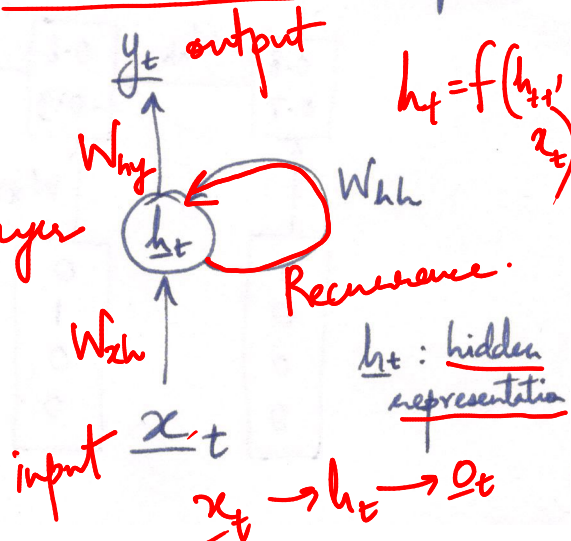 y_t output
h_t = f(h_{t-1},
x_t)
W_hy
W_hh
h_t
Recurrence.
W_xh
h_t : hidden
representation
input x_t
x_t → h_t → o_t